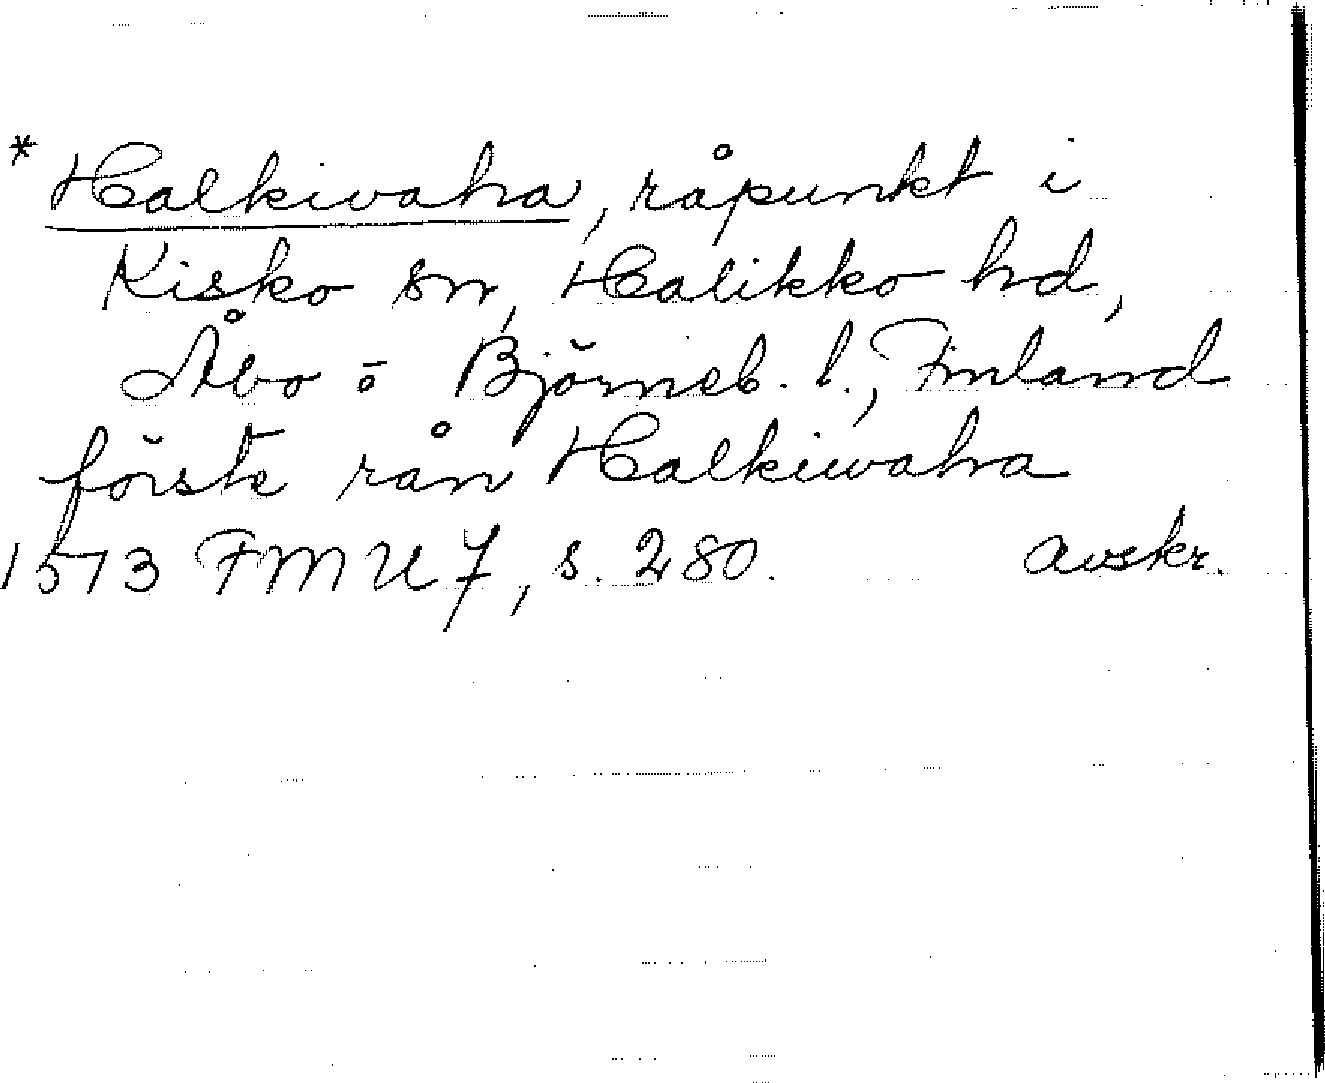 * Halkivaha, råpunkt i
Kisko sn, Halikko hd,
Åbo o Björneb. l., Finland
förste rån Halkiwaha
1573 FMU 7, s. 280. avskr.